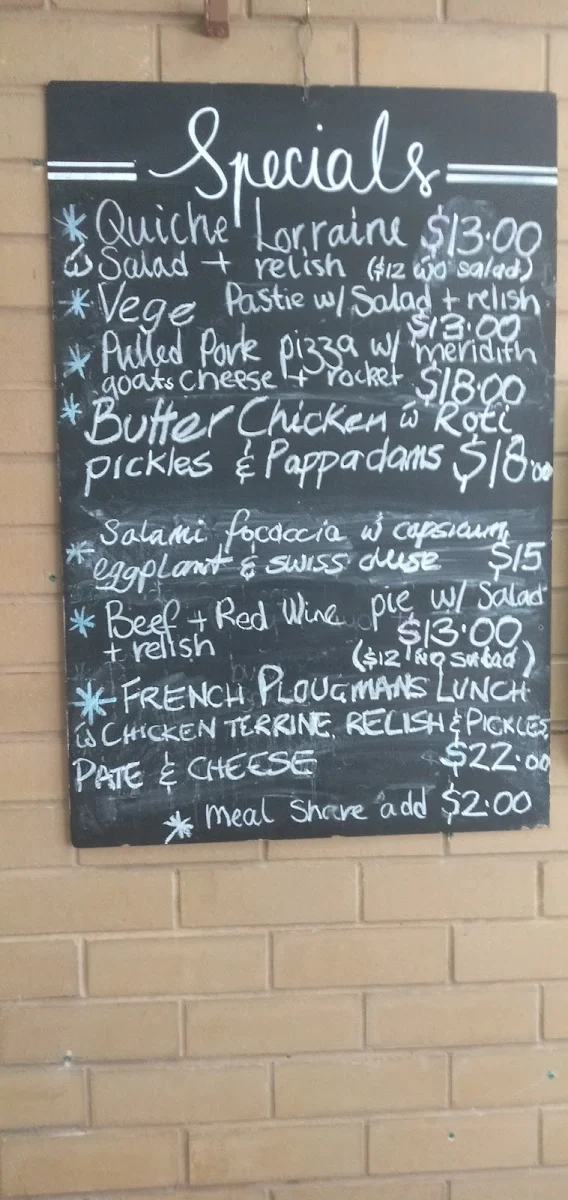 Specials
* Quiche Lorraine $13.00
w Salad + relish ($12 w/o salad)
* Vege Pastie w/ Salad + relish
$13.00
* Pulled Pork pizza w/ meridith
goats cheese + rocket $18.00
* Butter Chicken w Roti
pickles & Pappadams $18.00
Salami focaccia w capsicum,
* eggplant & swiss chese $15
* Beef + Red Wine pie w/ Salad
+ relish $13.00
($12 no salad)
* FRENCH PLOUGMANS LUNCH
w CHICKEN TERRINE, RELISH & PICKLES
PATE & CHEESE $22.00
* Meal Share add $2.00